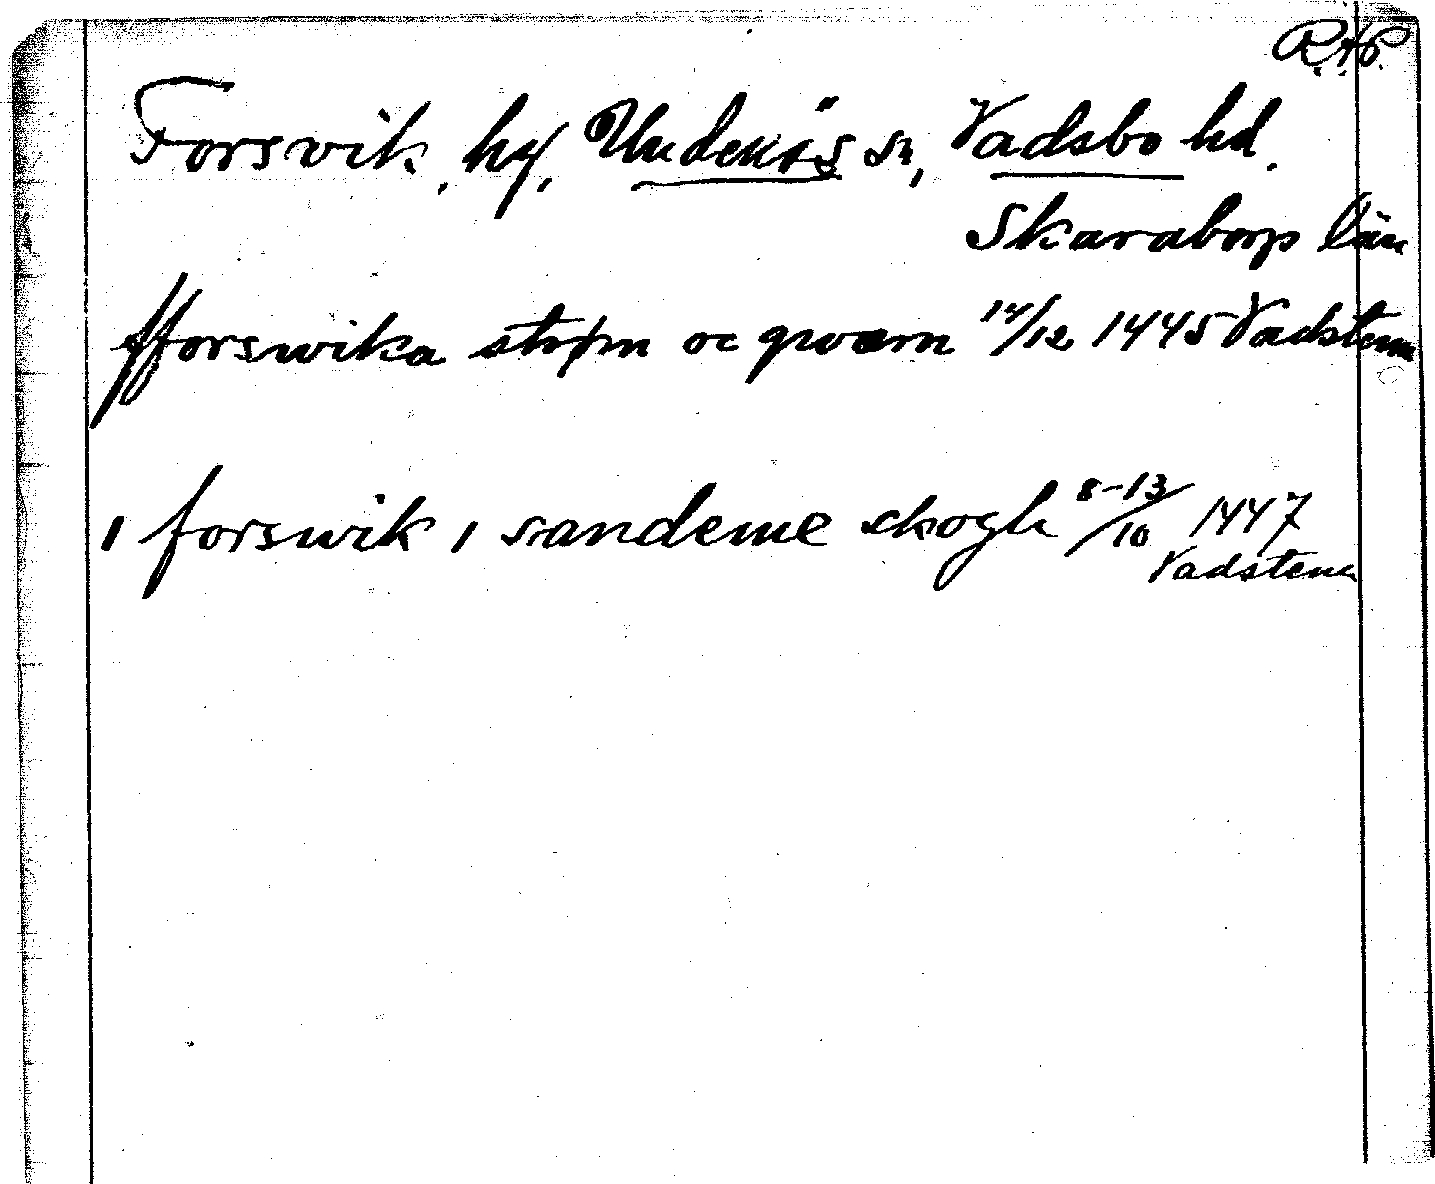 R.A.P.
Forsvik, by, Undenäs sn, Vadsbo hd.
Skaraborgs län
fforswika strøm oc qwærn 14/12 1445 Vadstena
i forswik i sandeme skogh 8-13/10 1447
Vadstena